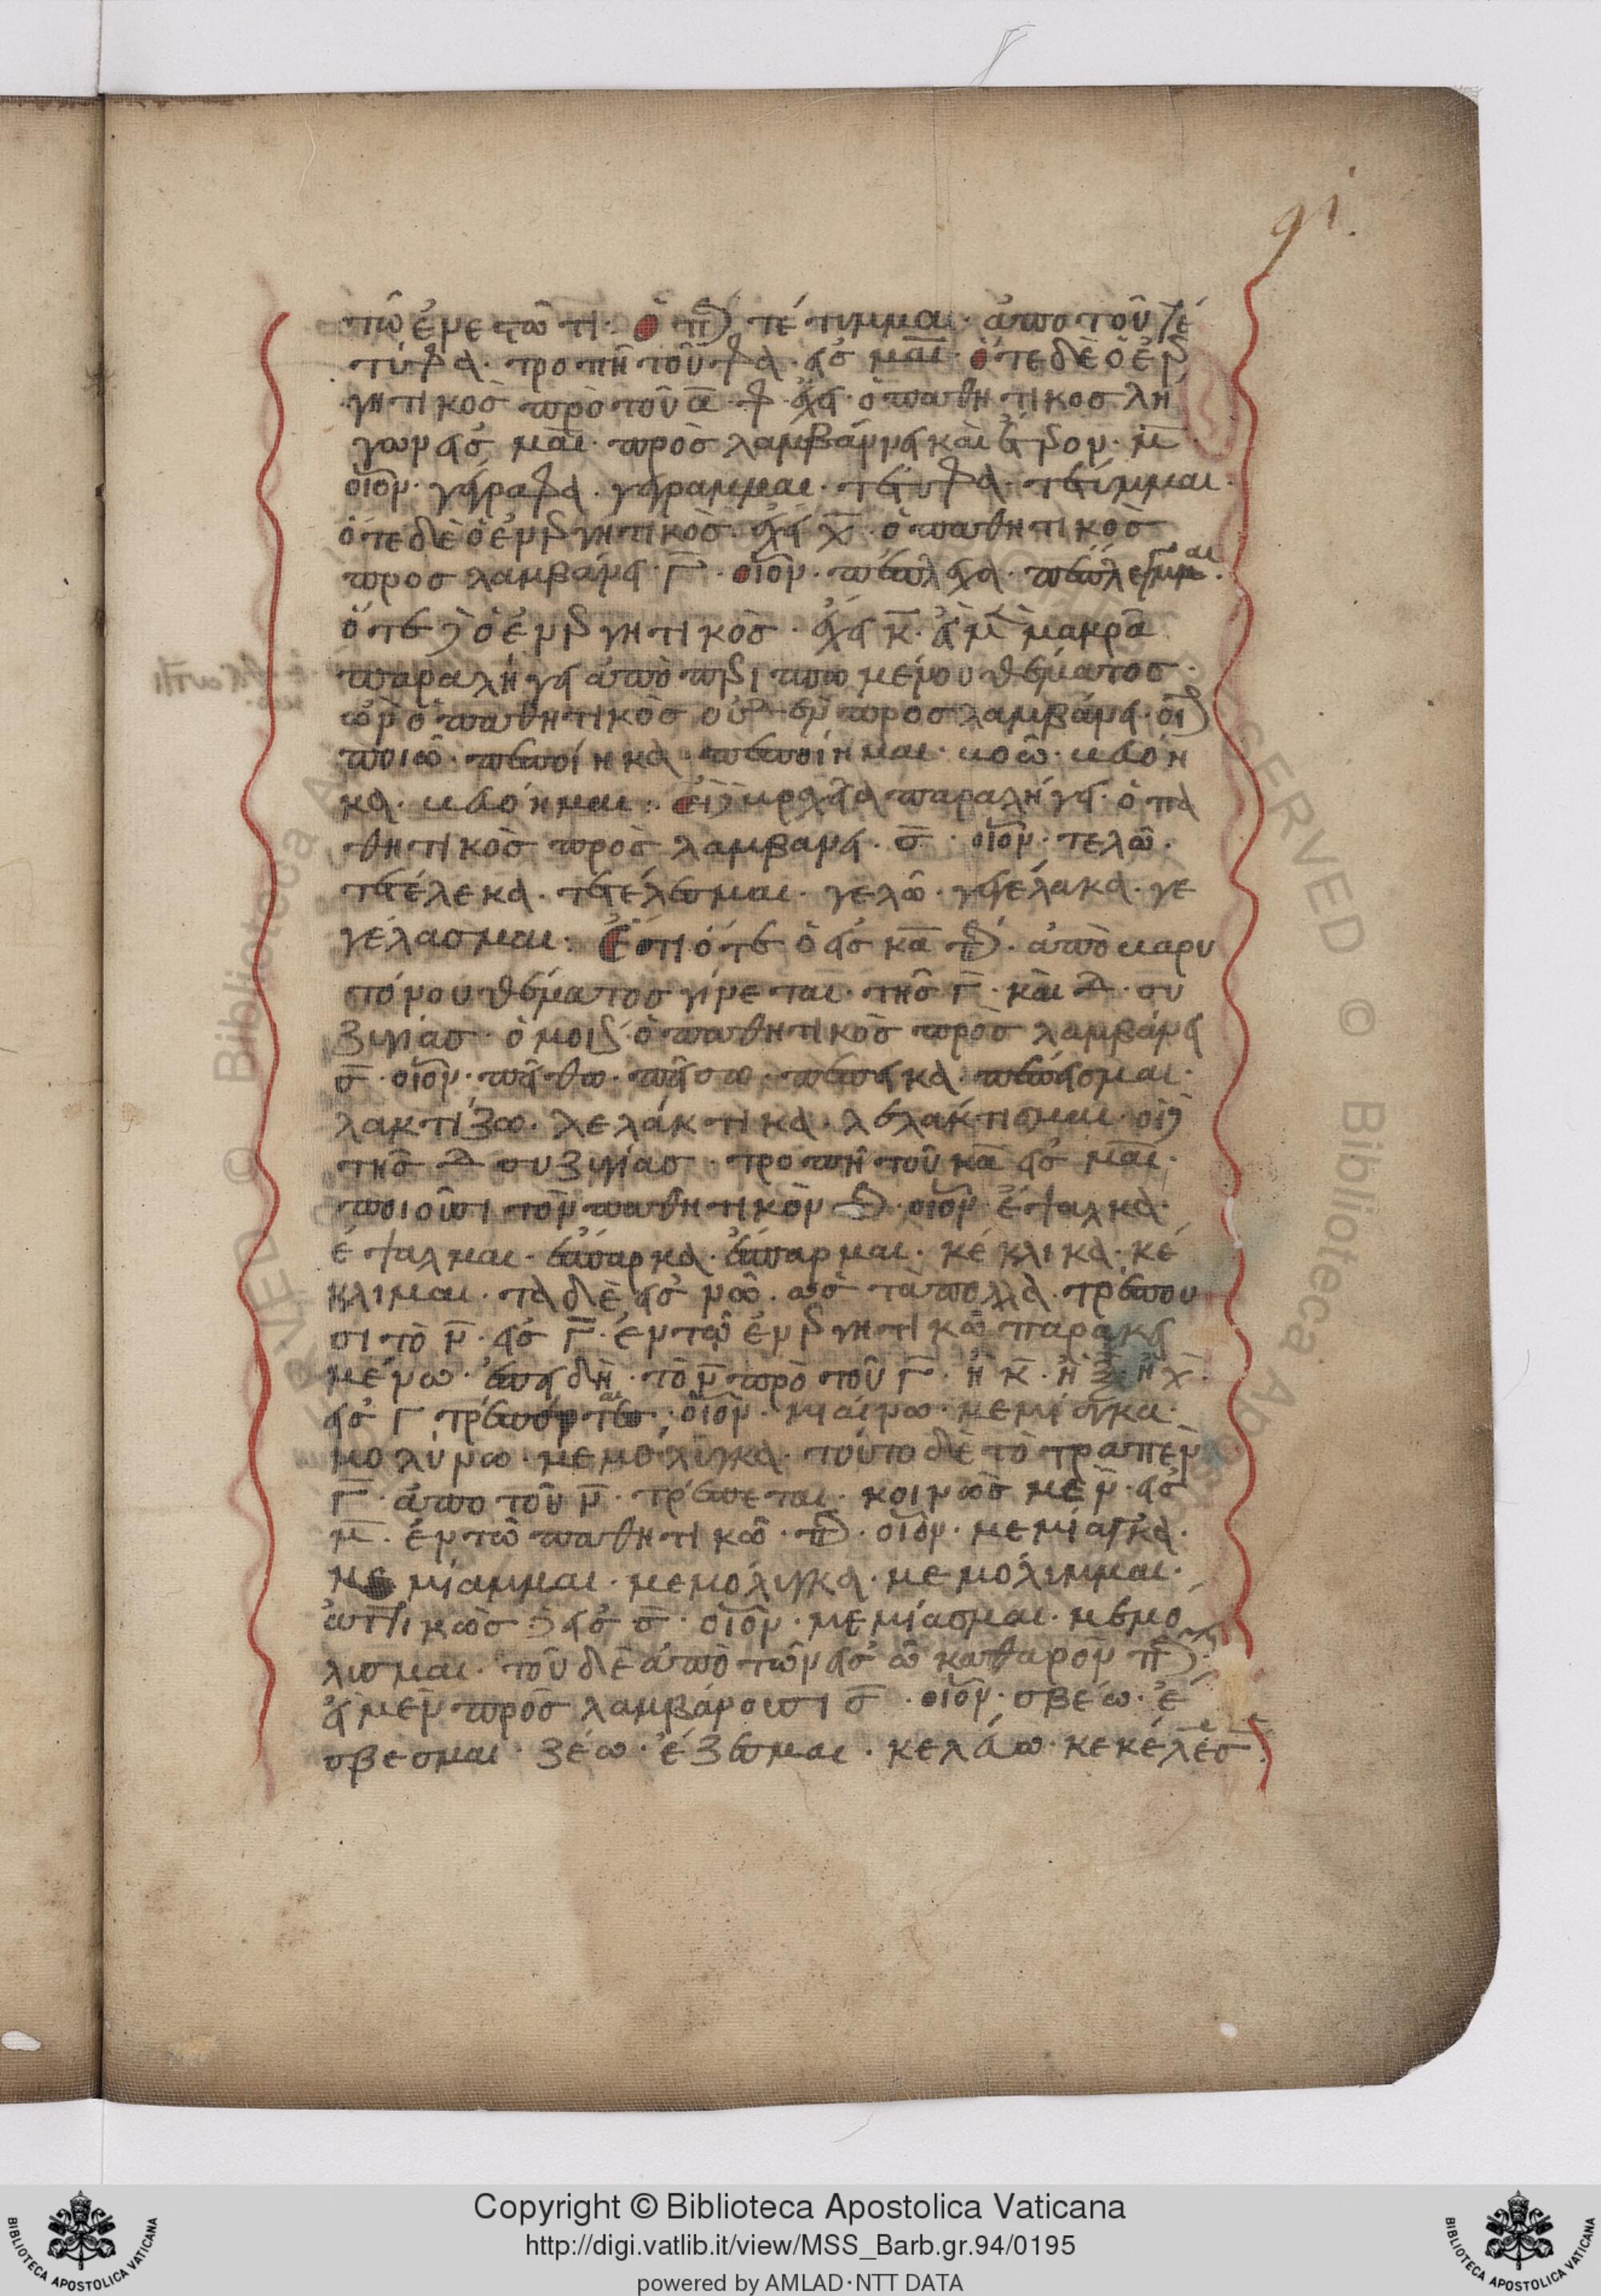 91.
πῶ ἐνετῶ τι. ὁ π τέτυμμαι. ἀπο τοῦ τέ
τυφα. τροπῆ τοῦ φα. εἰσ μαι. ὅτε δὲ ὁ ἐνερ
γητικὸσ πρὸ τοῦ α φ ἔχει. ὁ παθητικοσ λή
γων εἰσ μαι. προσ λαμβάνει καὶ ἕτερον μ
οἷον. γέγραφα. γέγραμμαι. τέτυφα. τέτυμμαι.
ὅτε δὲ ὁ ἐνεργητικὸσ. ἔχει χ. ὁ παθητικὸσ
προσ λαμβάνει γ. οἷον. πέπλεχα. πέπλεγμαι.
ὅτε ὁ ἐνεργητικὸσ. ἔχει κ. εἰ μὲν μακρᾶ
παραλήγει ἀπὸ περισπωμένου θέματοσ.
ὢν ὁ παθητικὸσ οὐδὲν προσλαμβάνει. οἷον
ποιῶ. πεποίηκα. πεποίημαι. νοῶ. νενόη
κα. νενόημαι. εἰ βραχεία παραλήγει. ὁ πα
θητικὸσ πρὸσ λαμβανει. σ. οἷον. τελῶ.
τετέλεκα. τετέλεσμαι. γελῶ. γεγέλακα. γε
γέλασμαι. ἔστι ὅτε ὁ εἰσ κα π. ἀπὸ βαρυ
τόνου θέματοσ γίνεται. τῆσ γ. καὶ δ. συ
ζυγίασ. ὁμοίωσ ὁ παθητικὸσ πρὸσ λαμβάνει
σ. οἷον. πείθω. πείσω. πέπεικα. πέπεισμαι.
λακτίζω. λελάκτικα. λελάκτισμαι. οἱ
τῆσ δ συζυγίασ. τροπῆ τοῦ κα εἰσ μαι.
ποιοῦσι τὸν παθητικὸν. οἷον. ἔψαλκα.
ἔψαλμαι. ἔσπαρκα. ἔσπαρμαι. κέκλικα. κέ
κλιμαι. τα δὲ εἰσ νω. ωσ τα πολλὰ. τρέπου
σι τὸ ν. εἰσ γ. ἐν τῶ ἐνεργητικῶ παρακει
μένω. ἐπειδὴ. τὸ ν πρὸ τοῦ γ. ἢ κ. ἢ ξ. ἢ χ.
εἰσ γ τρέπεται. οἷον. μιαίνω. μεμίαγκα.
μολύνω. μεμόλυγκα. τοῦτο δὲ τὸ τραπὲν
γ. ἀπο τοῦ ν. τρέπεται. κοινῶσ μεν. εἰσ
μ. ἐν τῶ παθητικῶ. π. οἷον. μεμίαγκα.
μεμίαμμαι. μεμόλυγκα. μεμόλυμμαι.
ἀττικῶσ δὲ εἰσ σ. οἷον. μεμίασμαι. μεμό
λυσμαι. τοῦ δὲ ἀπὸ τῶν εἰσ ω καθαρὸν π
εἰ μὲν προσ λαμβάνουσι σ. οἷον. σβέω. ἔ
σβεσμαι. ζέω. ἔζεσμαι. κελάω. κεκέλεσ
Copyright © Biblioteca Apostolica Vaticana
http://digi.vatlib.it/view/MSS_Barb.gr.94/0195
powered by AMLAD·NTT DATA
BIBLIOTECA APOSTOLICA VATICANA
BIBLIOTECA APOSTOLICA VATICANA